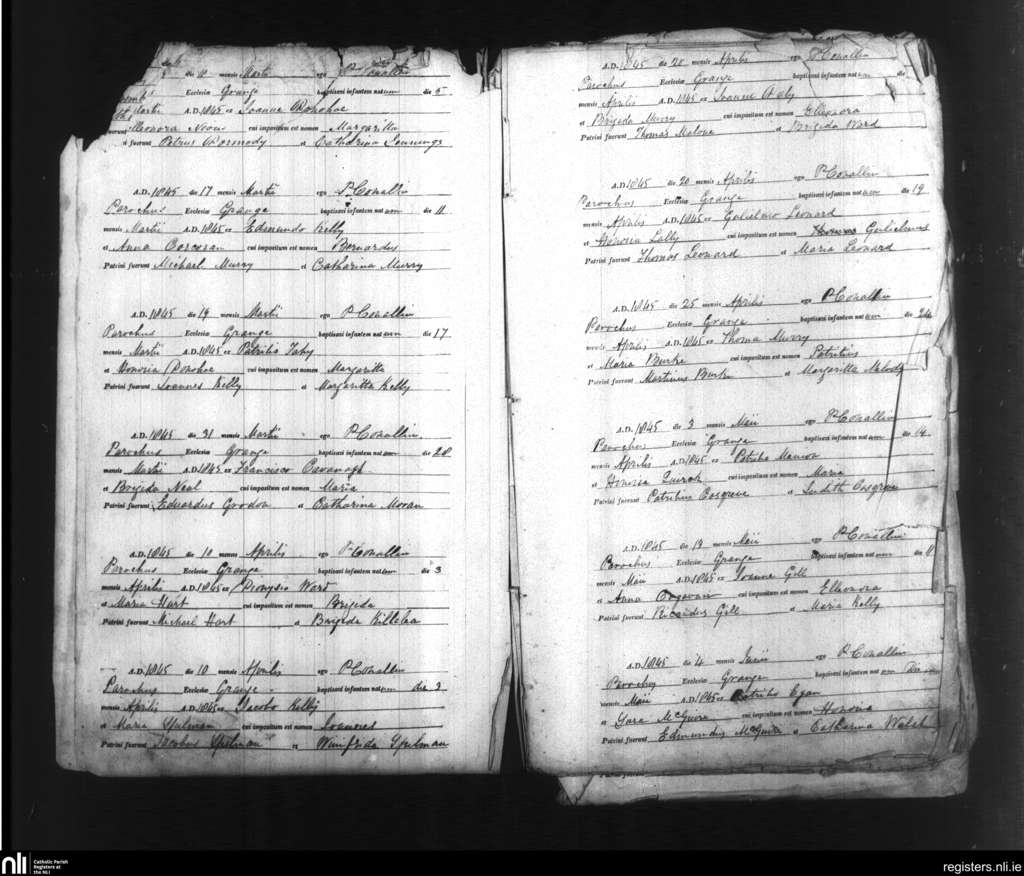 die 10 mensis Martii ego P Conallin
Ecclesiæ Grange baptisavi infantem natum die 5
Martii A.D. 1845 ex Joanne Donohoe
Eleonora Noon cui impositum est nomen Margaritta
fuerunt Petrus Cormody et Catharina Jennings
A.D. 1845 die 17 mensis Martii ego P Conallin
Parochus Ecclesiæ Grange baptisavi infantem natum die 11
mensis Martii A.D. 1845 ex Edmundo Kelly
et Anna Corcoran cui impositum est nomen Bernardus
Patrini fuerunt Michael Murry et Catharina Murry
A.D. 1845 die 19 mensis Martii ego P Conallin
Parochus Ecclesiæ Grange baptisavi infantem natum die 17
mensis Martii A.D. 1845 ex Patritio Fahy
et Honoria Donohoe cui impositum est nomen Margaritta
Patrini fuerunt Joannes Kelly et Margaritta Kelly
A.D. 1845 die 31 mensis Martii ego P Conallin
Parochus Ecclesiæ Grange baptisavi infantem natum die 28
mensis Martii A.D. 1845 ex Francisco Cavanagh
et Brigida Neal cui impositum est nomen Maria
Patrini fuerunt Eduardus Grodon et Catharina Moran
A.D. 1845 die 10 mensis Aprilis ego P Conallin
Parochus Ecclesiæ Grange baptisavi infantem natum die 3
mensis Aprilis A.D. 1845 ex Dionysio Ward
et Maria Hart cui impositum est nomen Brigida
Patrini fuerunt Michael Hart et Brigida Killalea
A.D. 1845 die 10 mensis Aprilis ego P Conallin
Parochus Ecclesiæ Grange baptisavi infantem natum die 3
mensis Aprilis A.D. 1845 ex Jacobo Kelly
et Maria Spelman cui impositum est nomen Joannes
Patrini fuerunt Jacobus Spelman et Winifrida Spelman
A.D. 1845 die 20 mensis Aprilis ego P Conallin
Parochus Ecclesiæ Grange baptisavi infantem natum die
mensis Aprilis A.D. 1845 ex Joanne Daly
et Brigida Murry cui impositum est nomen Eleonora
Patrini fuerunt Thomas Malone et Brigida Ward
A.D. 1845 die 20 mensis Aprilis ego P Conallin
Parochus Ecclesiæ Grange baptisavi infantem natum die 19
mensis Aprilis A.D. 1845 ex Gulielmo Leonard
et Honoria Lally cui impositum est nomen Gulielmus
Patrini fuerunt Thomas Leonard et Maria Leonard
A.D. 1845 die 25 mensis Aprilis ego P Conallin
Parochus Ecclesiæ Grange baptisavi infantem natum die 24
mensis Aprilis A.D. 1845 ex Thoma Murry
et Maria Burke cui impositum est nomen Patritius
Patrini fuerunt Martinus Burke et Margaritta Melody
A.D. 1845 die 3 mensis Maii ego P Conallin
Parochus Ecclesiæ Grange baptisavi infantem natum die 14
mensis Aprilis A.D. 1845 ex Patritio Mannion
et Honoria Quirok cui impositum est nomen Maria
Patrini fuerunt Patritius Cosgrave et Judith Cosgrave
A.D. 1845 die 13 mensis Maii ego P Conallin
Parochus Ecclesiæ Grange baptisavi infantem natum die 11
mensis Maii A.D. 1845 ex Joanne Gill
et Anna cui impositum est nomen Elleonora
Patrini fuerunt Ricardus Gill et Maria Kelly
A.D. 1845 die 4 mensis Junii ego P Conallin
Parochus Ecclesiæ Grange baptisavi infantem natum die
mensis Maii A.D. 1845 ex Patritio Egan
et Sara McGuire cui impositum est nomen Honoria
Patrini fuerunt Edmundus McGuire et Catharina Walsh
nli Catholic Parish
Registers at
the NLI
registers.nli.ie